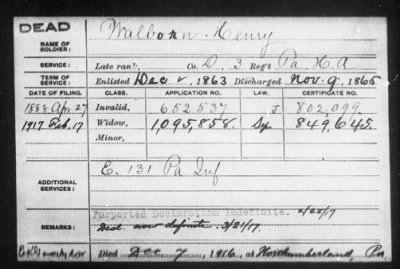 DEAD
NAME OF SOLDIER: Walborn Henry
SERVICE: Late rank, Co. D, 3 Reg't Pa. H. A
TERM OF SERVICE: Enlisted Dec 2, 1863 Discharged Nov. 9, 1865
DATE OF FILING. CLASS. APPLICATION NO. LAW. CERTIFICATE NO.
1888 Apr. 27 Invalid, 652,537 J 802,099
1917 Feb. 17 Widow, 1,095,858. 849,645.
Minor,
ADDITIONAL SERVICES: E. 131 Pa Inf
REMARKS: Purported Declaration indefinite. 2/28/17
Decl. now definite. 3/21/17.
Died Dec 7, 1916, at Northumberland, Pa